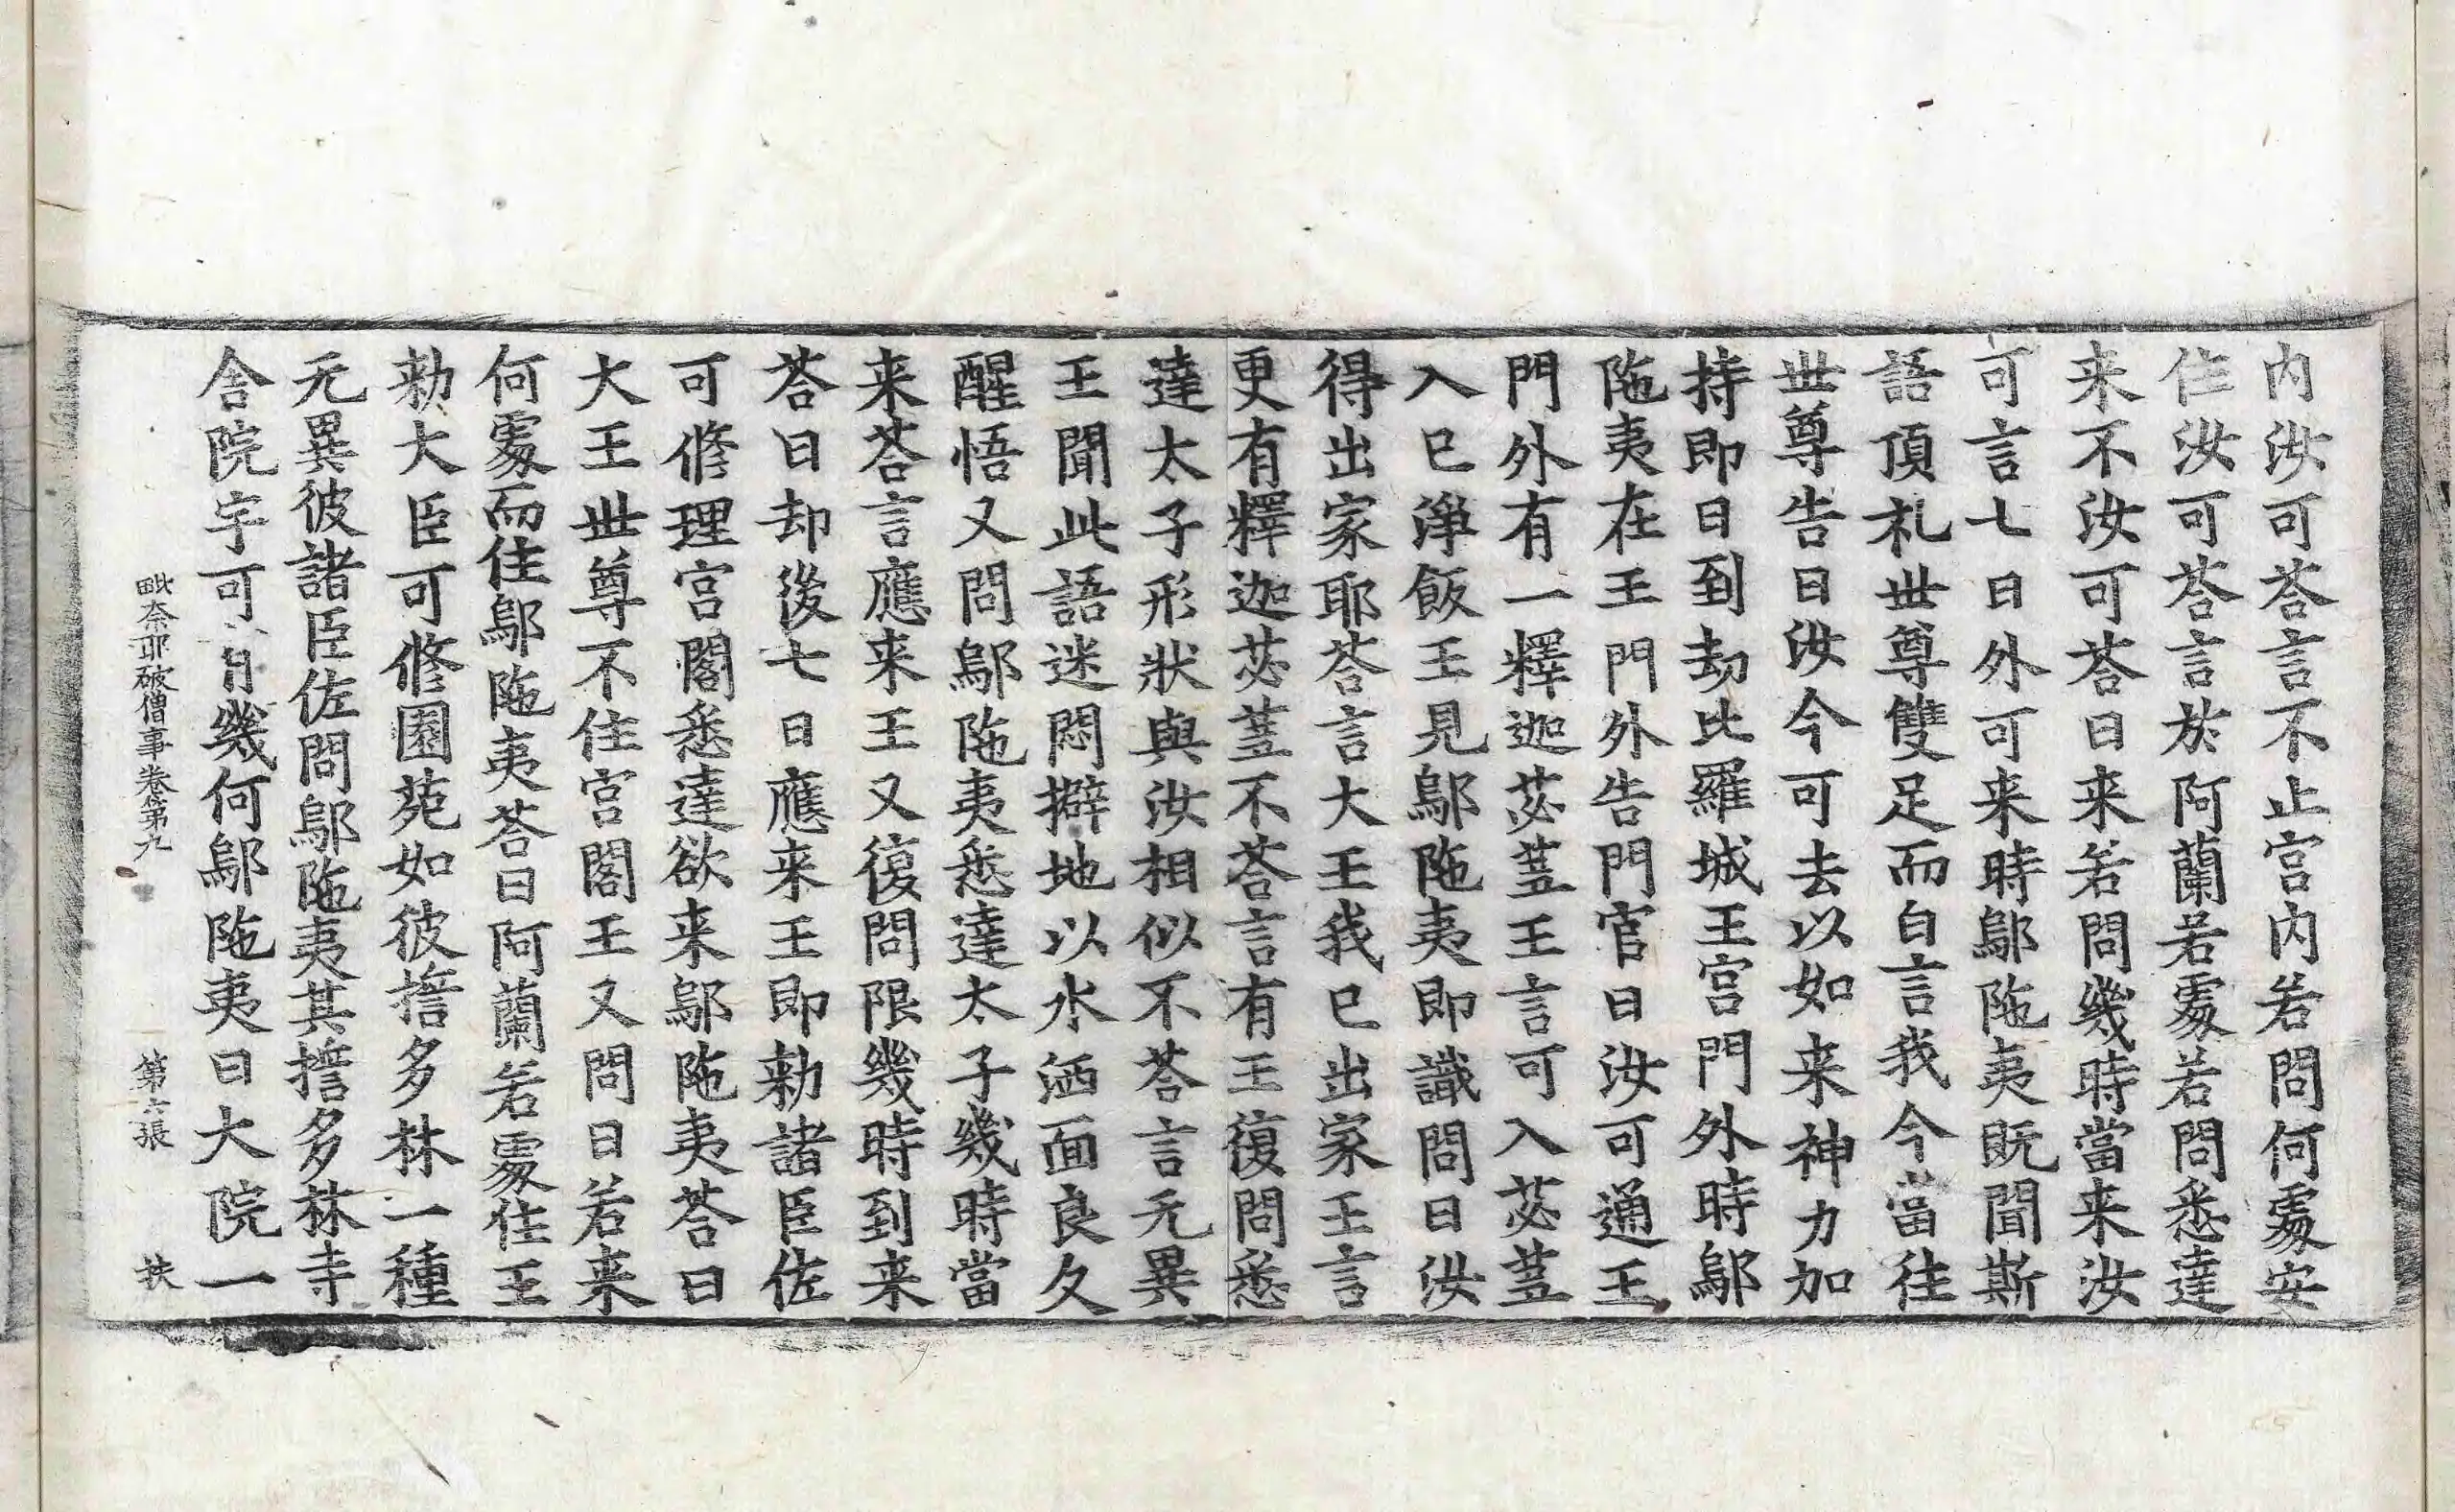 内汝可荅言不止宫内若問何處安
住汝可荅言於阿蘭若處若問悉達
来不汝可荅曰来若問幾時當来汝
可言七日外可来時鄔陁夷既聞斯
語頂礼世尊雙足而白言我今當往
世尊告曰汝今可去以如来神力加
持即日到劫比羅城王宫門外時鄔
陁夷在王門外告門官曰汝可通王
門外有一釋迦苾蒭王言可入苾蒭
入已淨飯王見鄔陁夷即識問曰汝
得出家耶荅言大王我已出家王言
更有釋迦苾蒭不荅言有王復問悉
達太子形狀與汝相似不荅言无異
王聞此語迷悶擗地以水洒面良久
醒悟又問鄔陁夷悉達太子幾時當
来荅言應来王又復問限幾時到来
荅曰却後七日應来王即勑諸臣佐
可修理宫閣悉達欲来鄔陁夷荅曰
大王世尊不住宫閣王又問曰若来
何處而住鄔陁夷荅曰阿蘭若處住王
勑大臣可修園苑如彼擔多林一種
无異彼諸臣佐問鄔陁夷其擔多林寺
舍院宇可有幾何鄔陁夷曰大院一
毗奈耶破僧事卷第九 第六張 扶